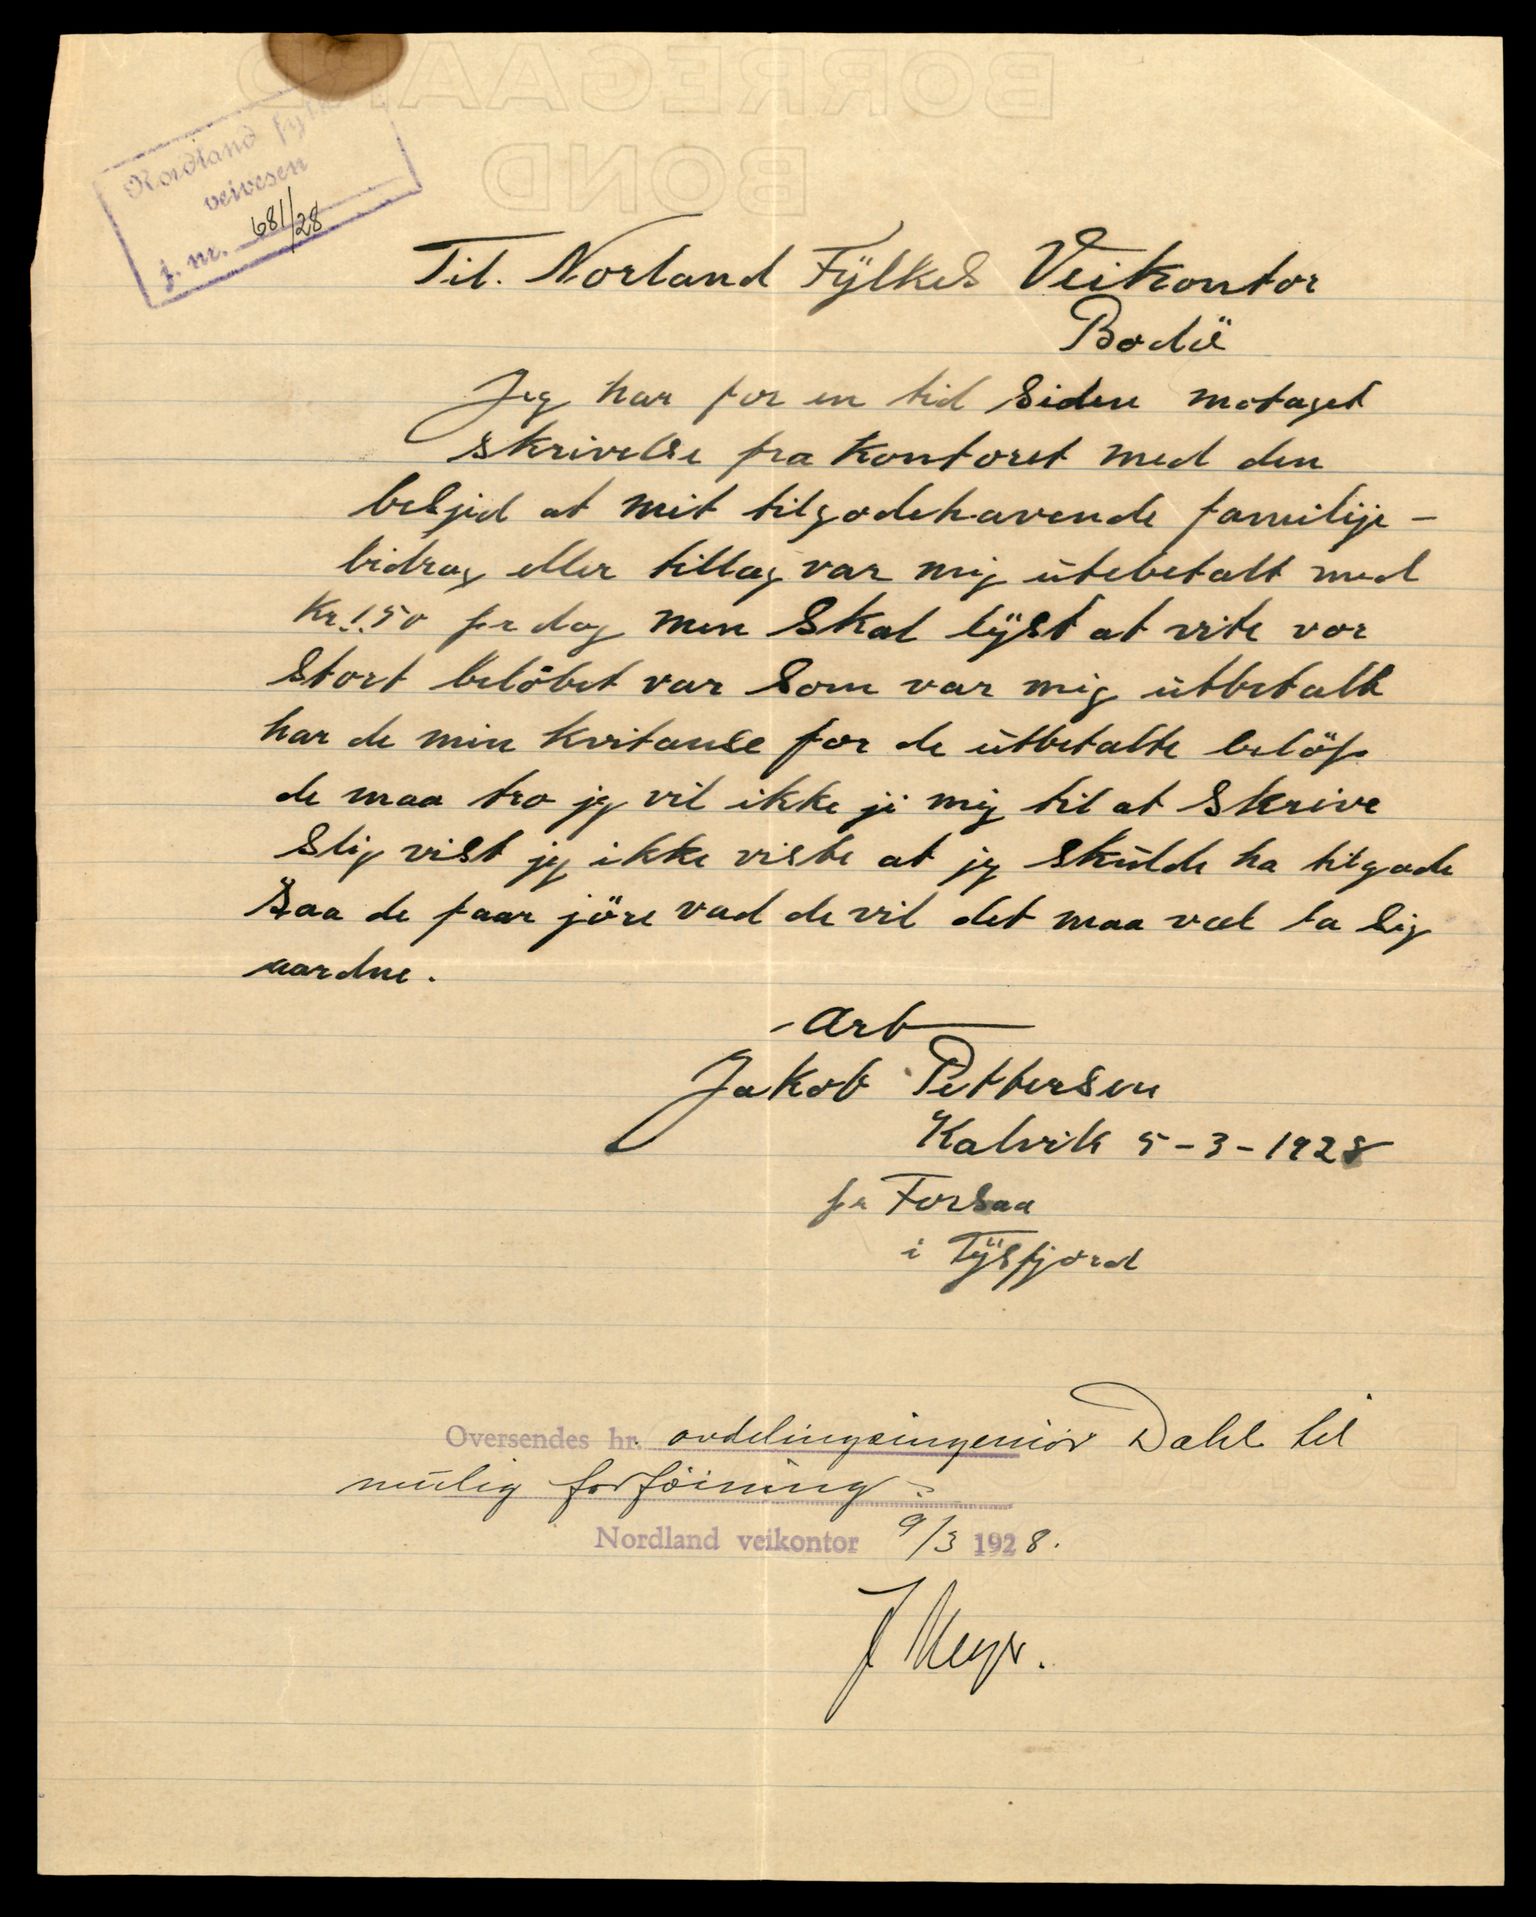 BORREGAARD
BOND
Nordland fylke
veivesen
j. nr. 681/28
Til. Norland Fÿlkes Veikontor
Bodö
Jeg har for en tid siden motaget
skrivelse fra kontoret med den
besjed at mit tilgodehavende familije-
bidrag eller tillag var mig ütebetalt med
Kr. 1.50 pr dag men skal lÿst at vite vor
stort belöbet var som var mig ütbetalt
har de min kvitanse for de ütbetalte belöp
de maa tro jeg vil ikke ji mig til at skrive
slig vist jeg ikke viste at jeg skülde ha tilgode
saa de faar jöre vad de vil det maa vel la sig
aardne.
Arb
Jakob Pettersen
Kalvik 5-3-1928
pr Forsaa
i Tÿsfjord
Oversendes hr. avdelingsingeniör Dahl til
mulig forföining.
Nordland veikontor 9/3 1928.
J Meyer.